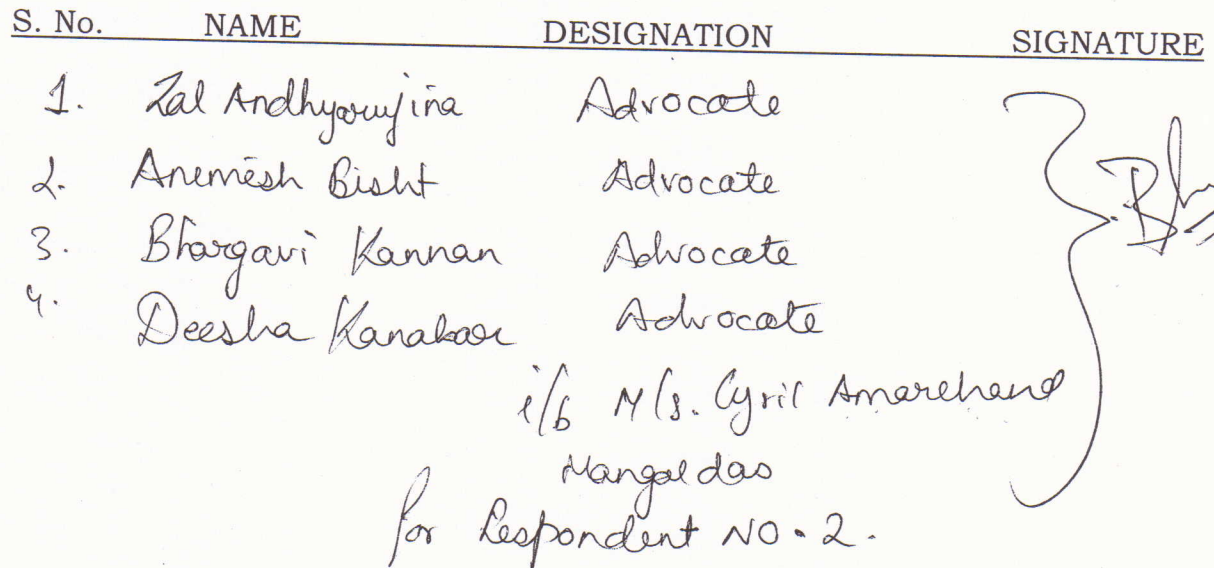 S. No. NAME DESIGNATION SIGNATURE
1. Zal Andhyarujina Advocate
2. Anemesh Bisht Advocate
3. Bhargavi Kannan Advocate
4. Deesha Kanakar Advocate
i/b M/s. Cyril Amarchand
Mangaldas
for Respondent NO. 2.